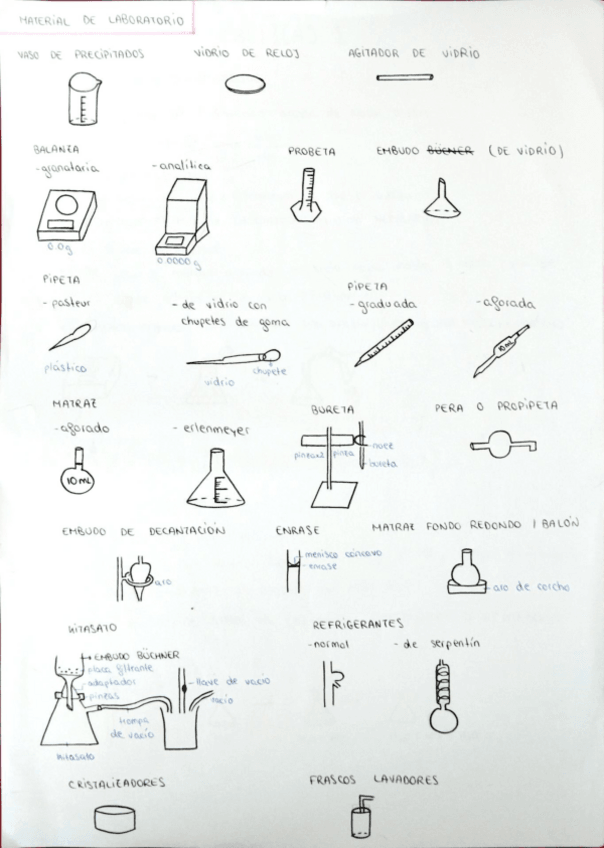 MATERIAL DE LABORATORIO
VASO DE PRECIPITADOS
VIDRIO DE RELOJ
AGITADOR DE VIDRIO
BALANZA
-granataria
-analítica
0.0g
0.0000g
PROBETA
EMBUDO BÜCNER (DE VIDRIO)
PIPETA
- pasteur
- de vidrio con
chupetes de goma
plástico
vidrio
chupete
PIPETA
-graduada
-aforada
10 mL
MATRAZ
-aforado
- erlenmeyer
10 mL
BURETA
pinza
nuez
bureta
PERA O PROPIPETA
EMBUDO DE DECANTACIÓN
aro
ENRASE
menisco cóncavo
enrase
MATRAZ FONDO REDONDO / BALÓN
aro de corcho
KITASATO
EMBUDO BÜCHNER
placa filtrante
adaptador
pinzas
trompa
de vacío
llave de vacío
vacío
kitasato
REFRIGERANTES
-normal
- de serpentín
CRISTALIZADORES
FRASCOS LAVADORES